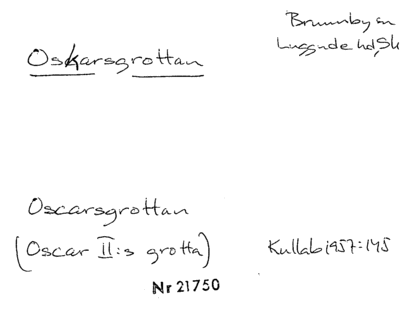 Brunnby sn
Oskarsgrottan
Luggude hd, Sk
Oscarsgrottan
(Oscar II:s grotta)
Kullab 1957:145
Nr 21750